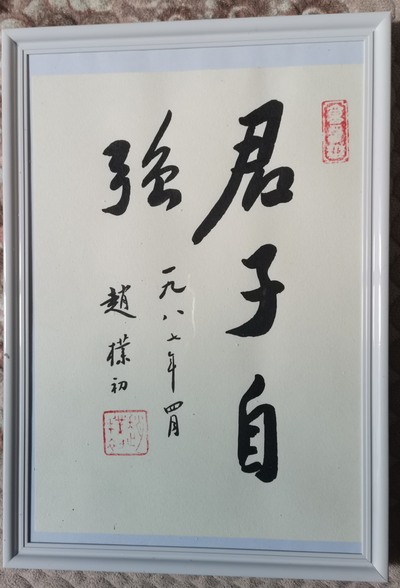 君子自
強
一九八七年四月
趙樸初